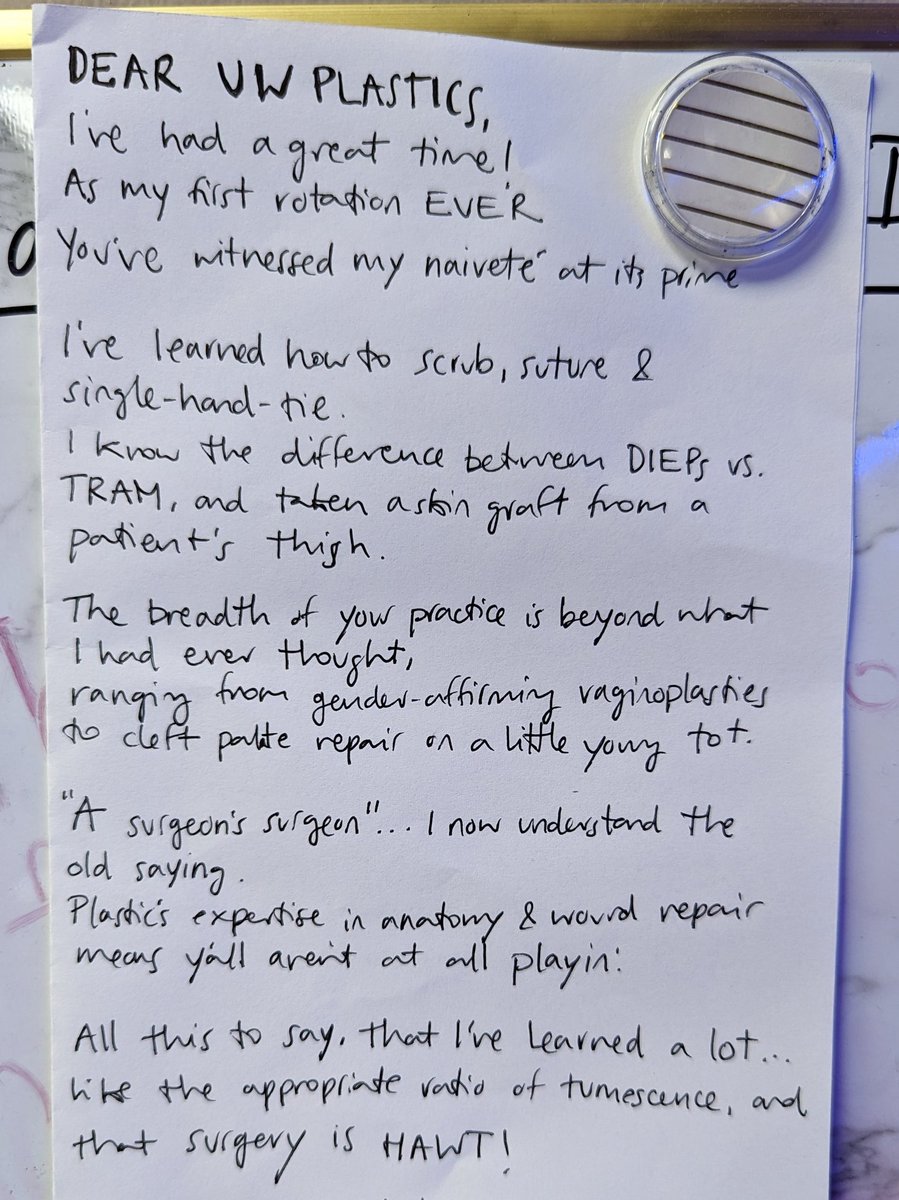 DEAR UW PLASTICS,
I've had a great time!
As my first rotation EVER
You've witnessed my naiveté at its prime
I've learned how to scrub, suture &
single-hand-tie.
I know the difference between DIEPs vs.
TRAM, and taken a skin graft from a
patient's thigh.
The breadth of your practice is beyond what
I had ever thought,
ranging from gender-affirming vaginoplasties
to cleft palate repair on a little young tot.
"A surgeon's surgeon"... I now understand the
old saying.
Plastic's expertise in anatomy & wound repair
means y'all aren't at all playin'.
All this to say, that I've learned a lot...
like the appropriate ratio of tumescence, and
that surgery is HAWT!